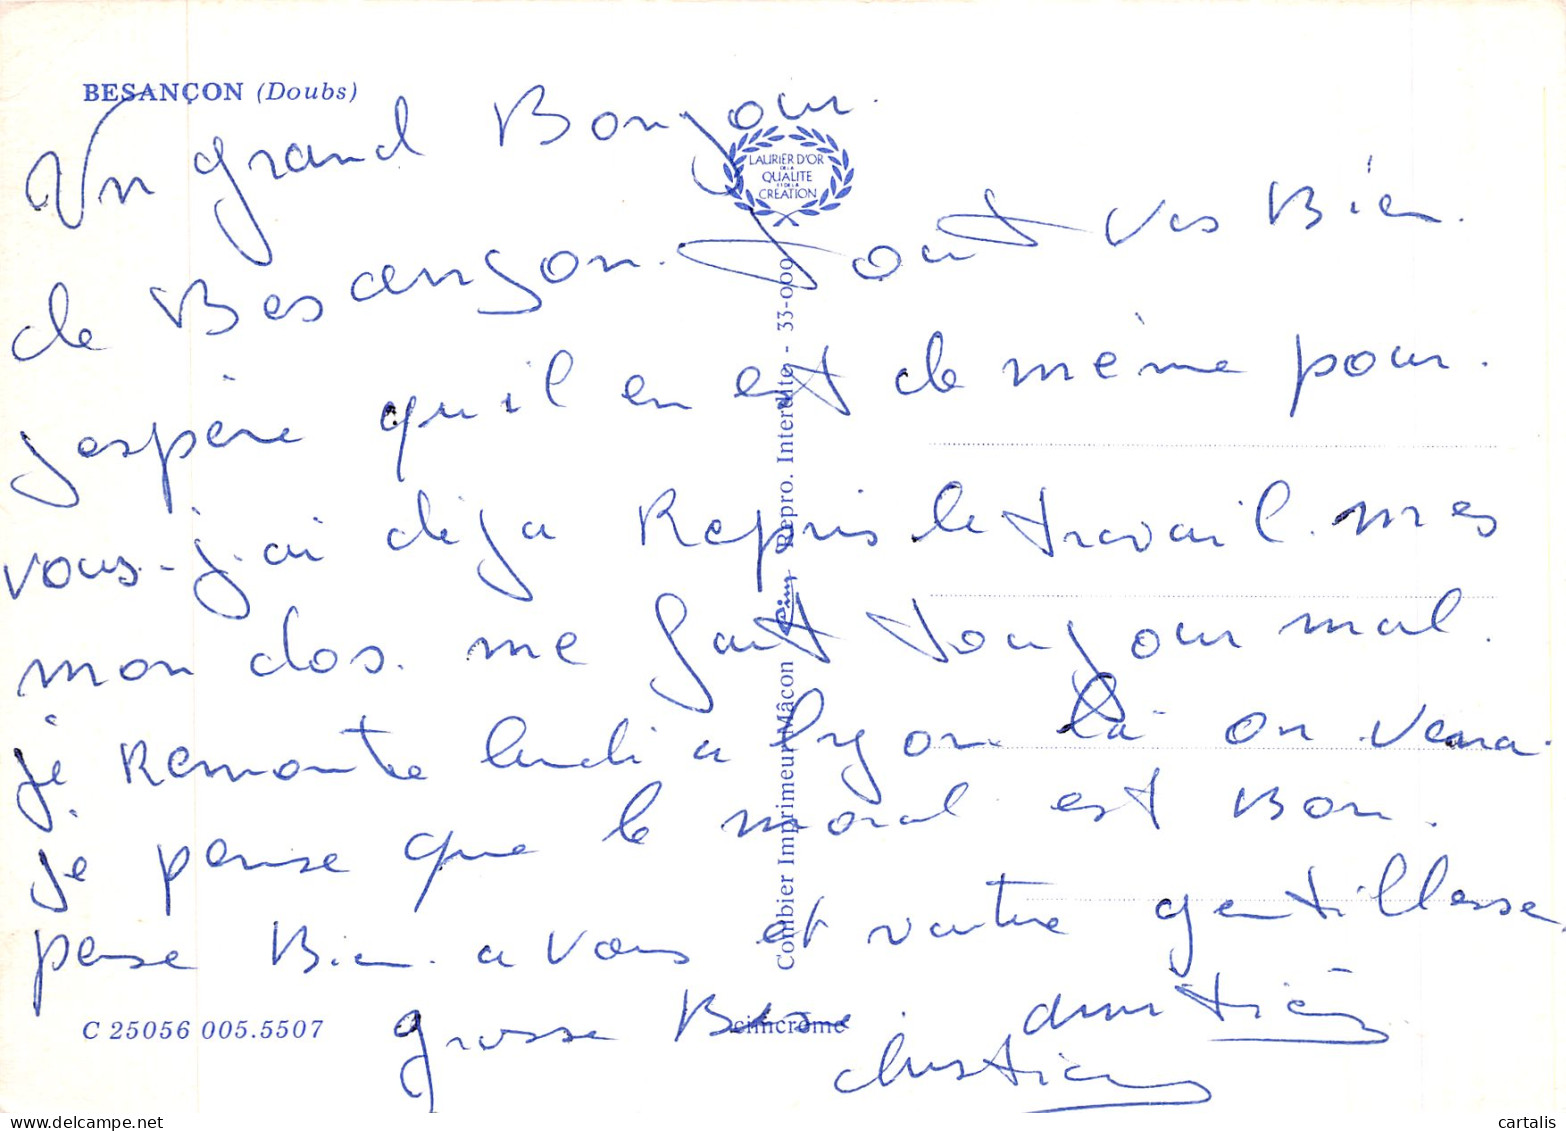 BESANÇON (Doubs)
Un grand Bonjour.
LAURIER D'OR
DE LA
QUALITE
ET DE LA
CREATION
de Besançon. Tout vas Bien.
jespère qu'il en est de même pour.
vous - j'ai déja Repris le travail. mes
mon dos. me fait toujour mal.
je Remonte lundi a lyon. là on vera.
je pense que le moral est Bon.
pense Bien. a vous et votre gentillesse.
grosse Bise.
christian
Combier Imprimeur Mâcon Cim Repro. Interdite - 33-009
C 25056 005.5507
cimcrome
cartalis